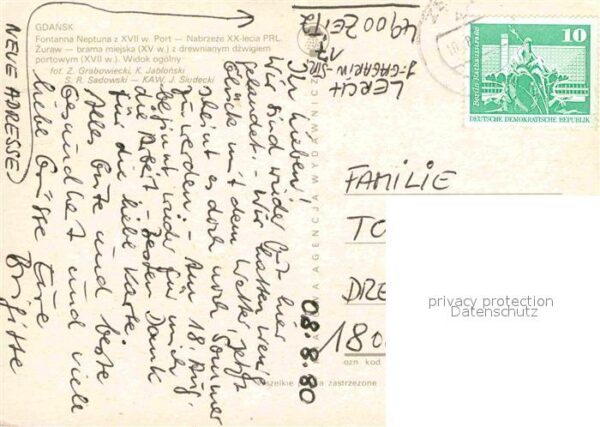 GDAŃSK
Fontanna Neptuna z XVII w. Port — Nabrzeże XX-lecia PRL.
Żuraw — brama miejska (XV w.) z drewnianym dźwigiem
portowym (XVII w.). Widok ogólny
fot. Z. Grabowiecki, K. Jabłoński
S. R. Sadowski — KAW, J. Siudecki
NEUE ADRESSE
LERCH
J=GAGARIN-STR
17
4900 ZEITZ
Ihr Lieben!
Wir sind wieder gut hier
gelandet. - Wir hatten wenig
Glück mit dem Wetter, jetzt
scheint es doch noch Sommer
zu werden. - Am 18. Aug.
beginnt wieder für mich
die Arbeit - Besten Dank
für die liebe Karte.
Alles Gute und beste
Gesundheit und viele
liebe Grüsse Eure
Brigitte
08.8.80
AGENCJA WYDAWNICZA
10
DEUTSCHE DEMOKRATISCHE REPUBLIK
Berlin, Rathausstraße
FAMILIE
TO
DRE
180
ozn kod
wszelkie prawa zastrzeżone
privacy protection
Datenschutz